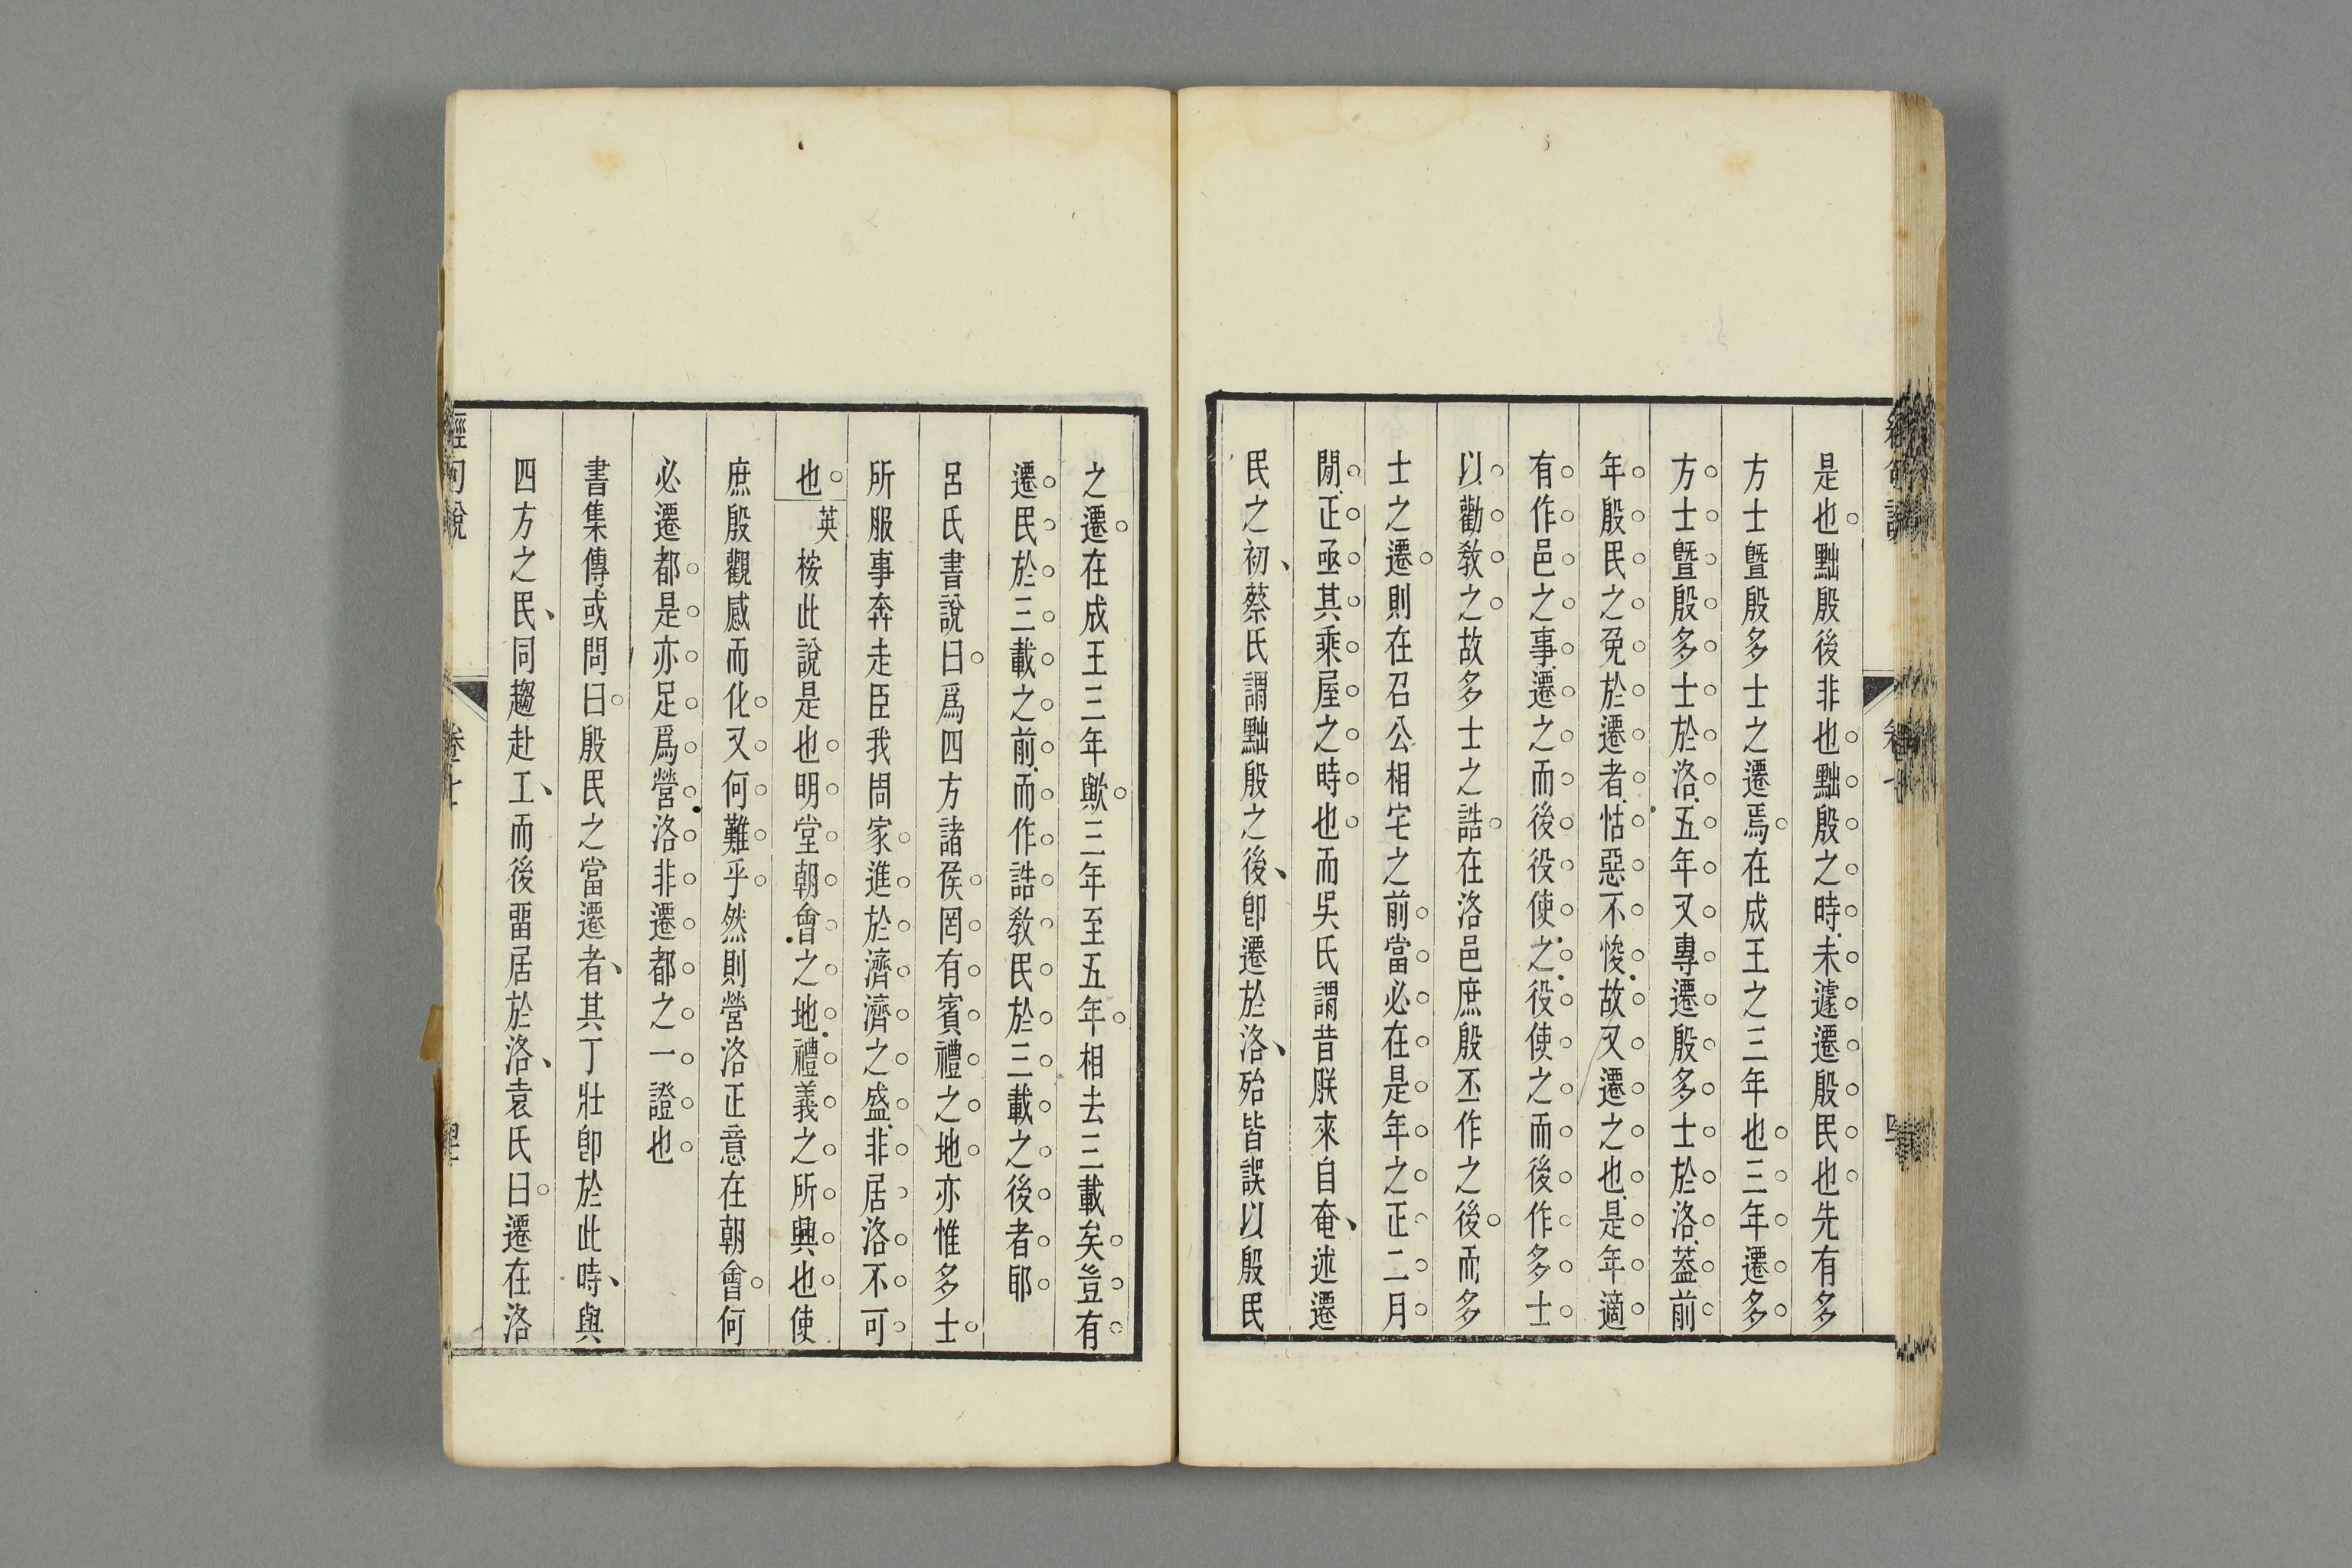 是也黜殷後非也黜殷之時未遽遷殷民也先有多
方士曁殷多士之遷焉在成王之三年也三年遷多
方士曁殷多士於洛五年又專遷殷多士於洛葢前
年殷民之免於遷者怙惡不悛故又遷之也是年適
有作邑之事遷之而後役使之役使之而後作多士
以勸敎之故多士之誥在洛邑庶殷丕作之後而多
士之遷則在召公相宅之前當必在是年之正二月
閒正亟其乘屋之時也而吳氏謂昔朕來自奄述遷
民之初蔡氏謂黜殷之後卽遷於洛殆皆誤以殷民
之遷在成王三年歟三年至五年相去三載矣豈有
遷民於三載之前而作誥敎民於三載之後者耶
呂氏書說曰爲四方諸侯罔有賓禮之地亦惟多士
所服事奔走臣我周家進於濟濟之盛非居洛不可
也英桉此說是也明堂朝會之地禮義之所興也使
庶殷觀感而化又何難乎然則營洛正意在朝會何
必遷都是亦足爲營洛非遷都之一證也
書集傳或問曰殷民之當遷者其丁壯卽於此時與
四方之民同趨赴工而後畱居於洛袁氏曰遷在洛
經句說
卷七